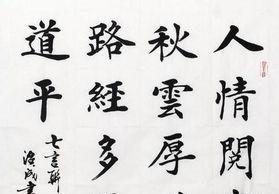 人情閱
秋雲厚
路經多
道平
七言聯